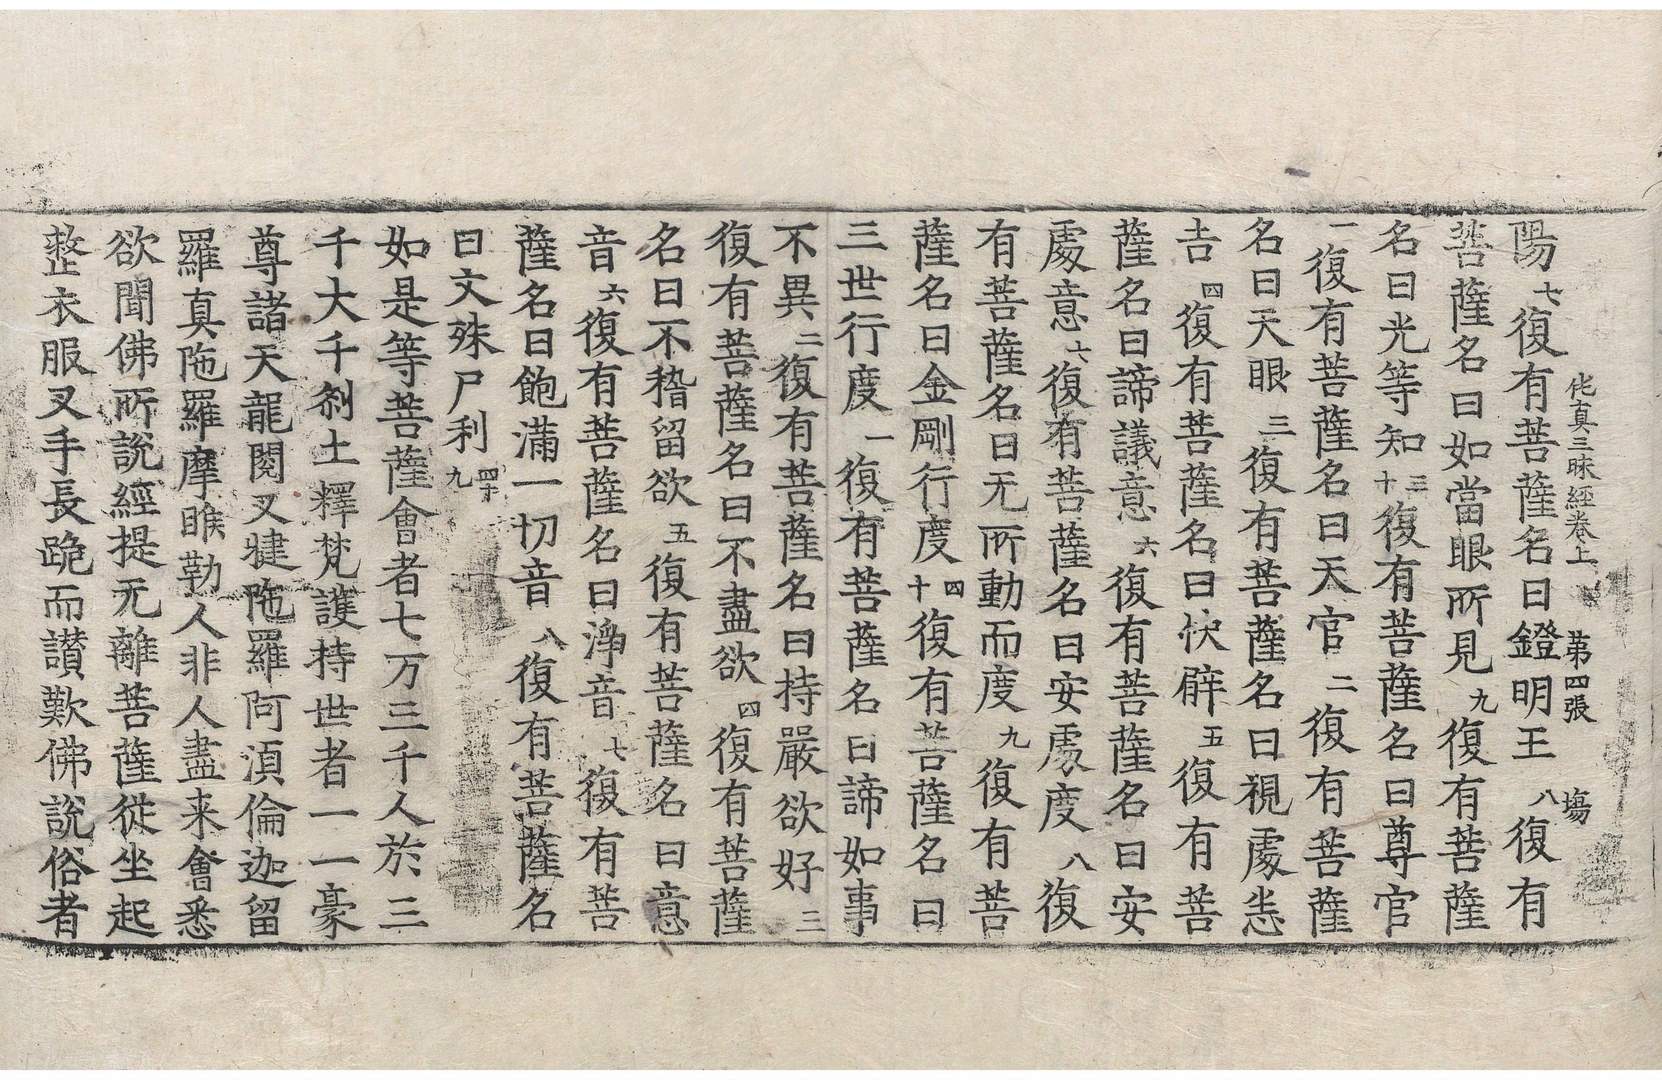 佗真三昧經卷上 苐四張 塲
陽七復有菩薩名曰鐙明王八復有
菩薩名曰如當眼所見九復有菩薩
名曰光等知三十復有菩薩名曰尊官
一復有菩薩名曰天官二復有菩薩
名曰天眼三復有菩薩名曰視處恙
吉四復有菩薩名曰快辟五復有菩
薩名曰諦議意六復有菩薩名曰安
處意七復有菩薩名曰安處度八復
有菩薩名曰无所動而度九復有菩
薩名曰金剛行度四十復有菩薩名曰
三世行度一復有菩薩名曰諦如事
不異二復有菩薩名曰持嚴欲好三
復有菩薩名曰不盡欲四復有菩薩
名曰不稽留欲五復有菩薩名曰意
音六復有菩薩名曰淨音七復有菩
薩名曰飽滿一切音八復有菩薩名
曰文殊尸利四十九
如是等菩薩會者七万三千人於三
千大千剎土釋梵護持世者一一豪
尊諸天龍閱叉揵陁羅阿湏倫迦留
羅真陁羅摩睺勒人非人盡来會悉
欲聞佛所說經提无離菩薩從坐起
整衣服叉手長跪而讃歎佛說俗者